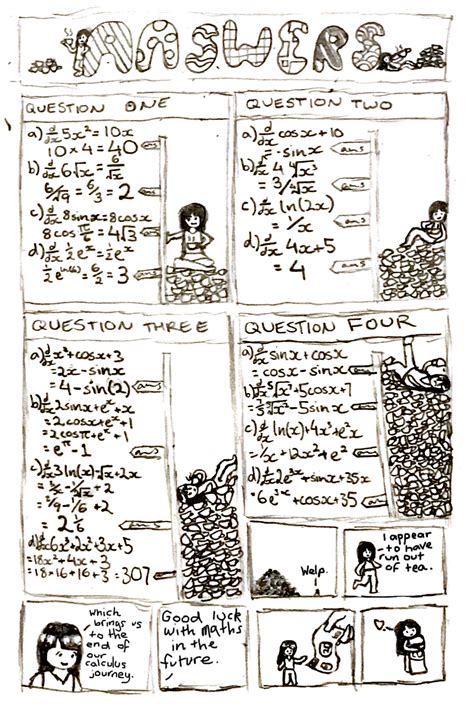 ANSWERS
QUESTION ONE
a) d/dx 5x² = 10x
10 × 4 = 40
ans
b) d/dx 6√x = 6/√x
6/√9 = 6/3 = 2
c) d/dx 8sinx = 8cosx
8cos π/6 = 4√3
d) d/dx ½e^x = ½e^x
½e^ln(6) = 6/2 = 3
QUESTION TWO
a) d/dx cosx + 10
= -sinx
ans
b) d/dx 4 ∜x³
= 3/∜x
c) d/dx ln(2x)
= 1/x
ans
d) d/dx 4x + 5
= 4
ans
QUESTION THREE
a) d/dx x² + cosx + 3
= 2x - sinx
= 4 - sin(2)
ans
b) d/dx 2sinx + e^x + x
= 2cosx + e^x + 1
2cosπ + e^π + 1
= e^π - 1
c) d/dx 3ln(x) - √x + 2x
= 3/x - 1/2√x + 2
= 3/9 - 1/6 + 2
= 2 1/6
d) d/dx 6x³ + 2x² + 3x + 5
= 18x² + 4x + 3
= 18×16 + 16 + 3 = 307
QUESTION FOUR
a) d/dx sinx + cosx
= cosx - sinx
ans
+ 5cosx + 7
- 5sinx
c) d/dx ln(x) + 4x³ + e²x
= 1/x + 12x² + e²
d) d/dx 2e^3x + sinx + 35x
= 6e^3x + cosx + 35
ans
Welp.
I appear
to have
run out
of tea.
which
brings us
to the
end of
our
calculus
journey.
Good luck
with maths
in the
future.